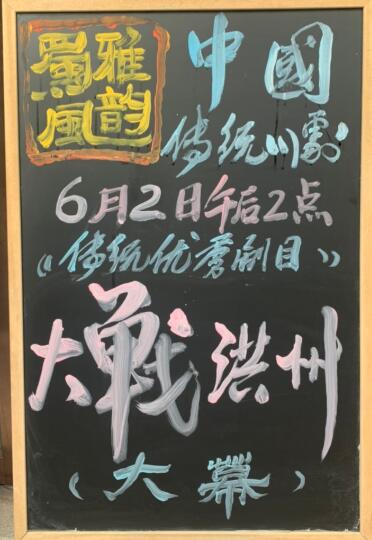 蜀風
雅韵
中國
传统川劇
6月2日午后2点
《传统优秀剧目》
大戰洪州
(大幕)